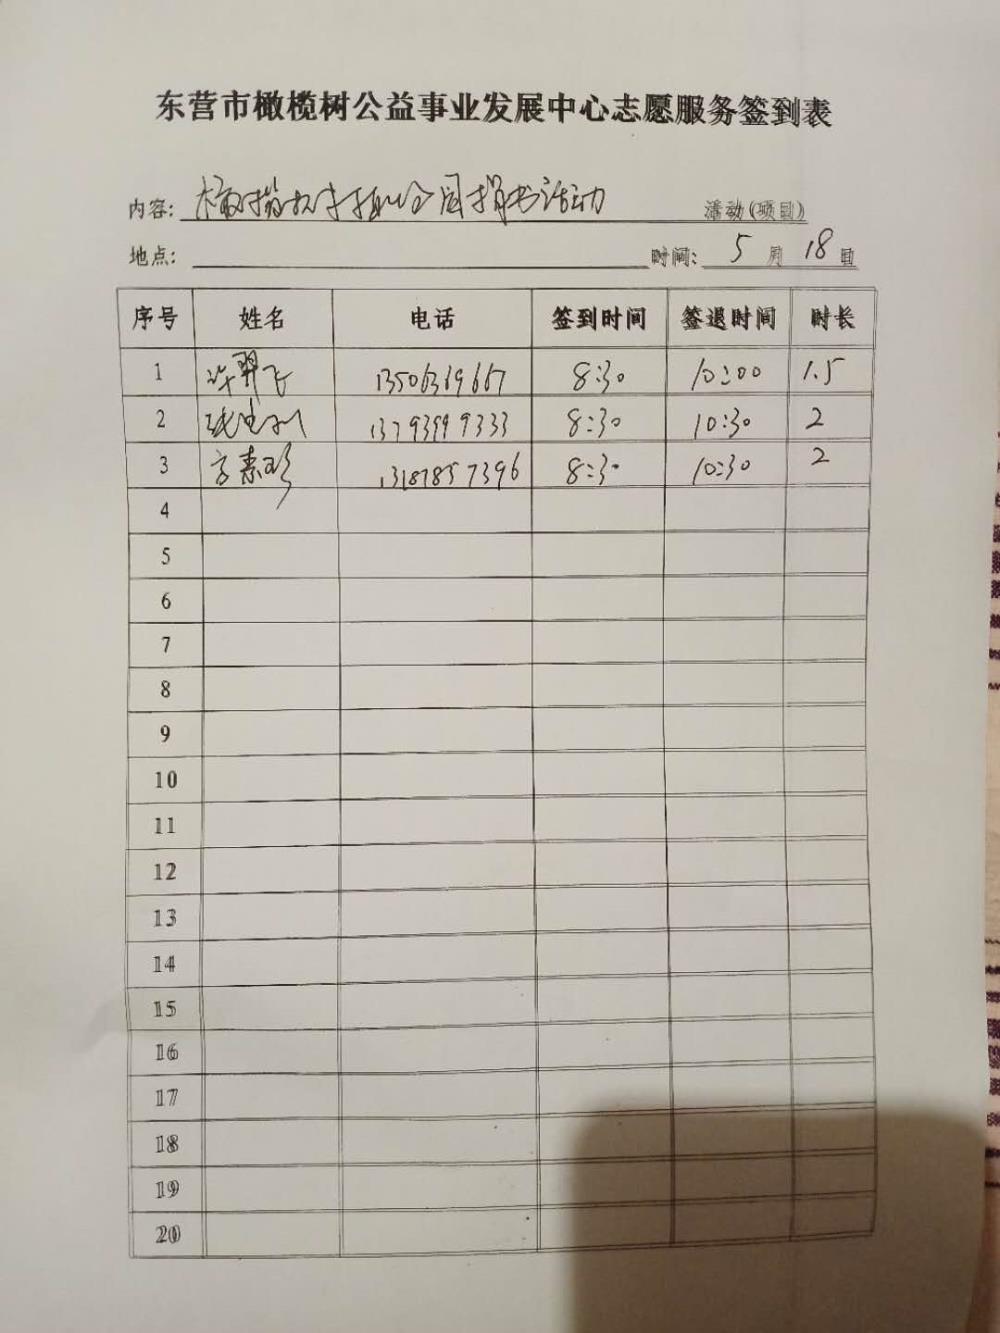 东营市橄榄树公益事业发展中心志愿服务签到表
内容: 捐书活动 活动(项目)
地点: 时间: 5 月 18 日
序号 姓名 电话 签到时间 签退时间 时长
1 13506369667 8:30 10:00 1.5
2 13793999333 8:30 10:30 2
3 方素珍 13187857396 8:30 10:30 2
4
5
6
7
8
9
10
11
12
13
14
15
16
17
18
19
20